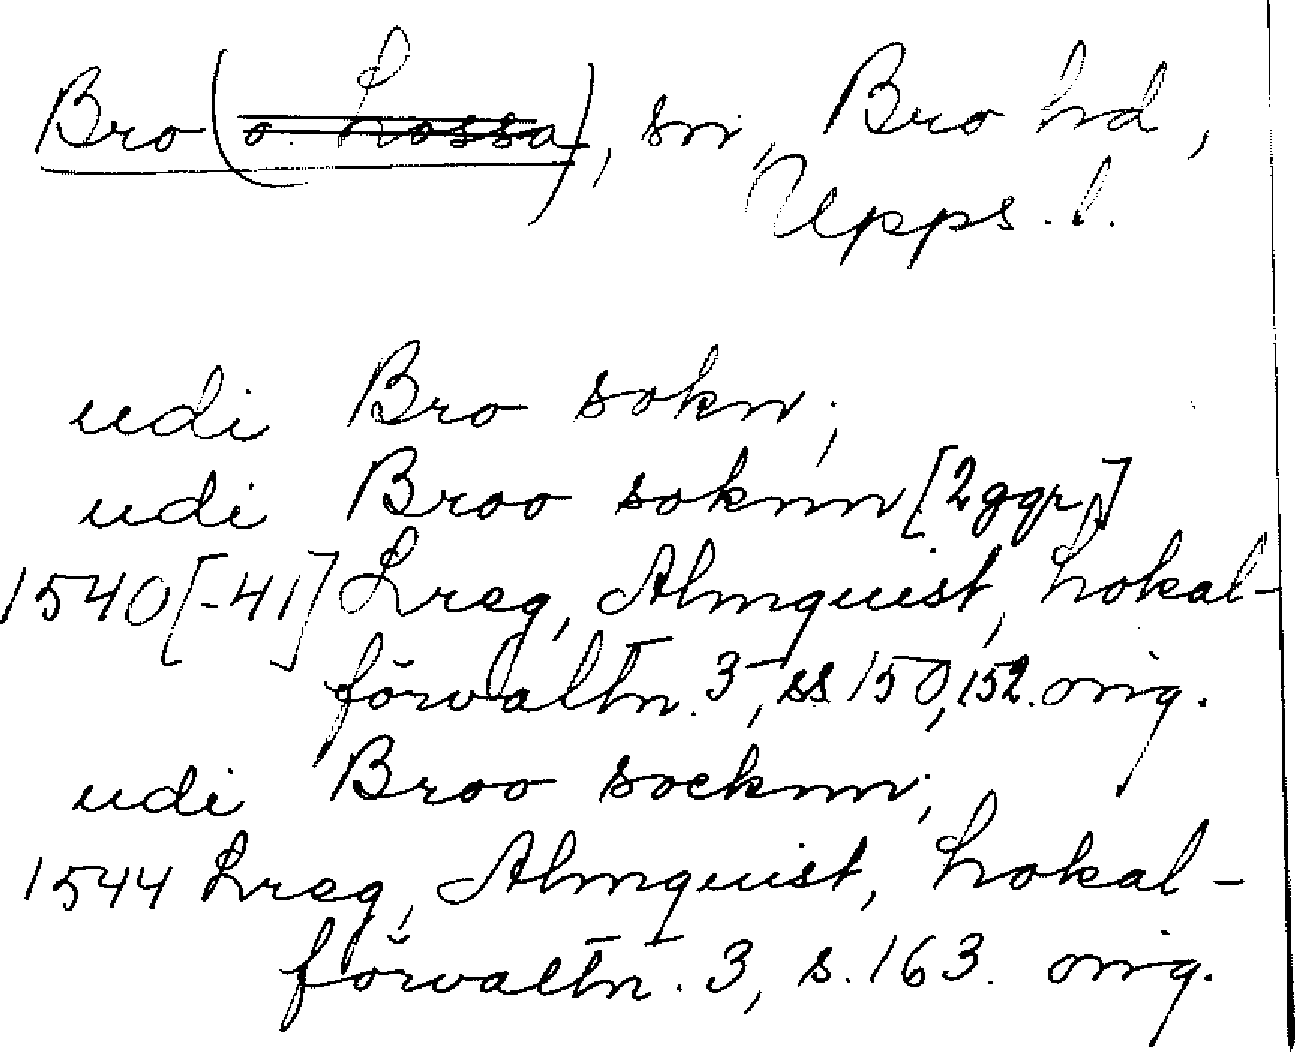 Bro (o. Lossa), sn, Bro hd,
Upps. l.
udi Bro sokn;
udi Broo soknn [2 ggr,]
1540[-41] Lreg, Almquist, Lokal-
förvaltn. 3, ss. 150, 152. orig.
udi Broo socknn;
1544 Lreg, Almquist, Lokal-
förvaltn. 3, s. 163. orig.